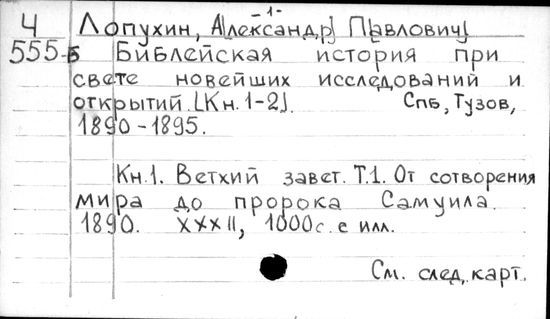 -1-
Ч Лопухин, А[лександр] П[авлович]
555-б Библейская история при
свете новейших исследований и
открытий. [Кн. 1-2].  Спб, Тузов,
1890-1895.
Кн.1. Ветхий завет. Т.1. От сотворения
мира до пророка Самуила.
1890. XXXII, 1000с. с илл.
См. след. карт.